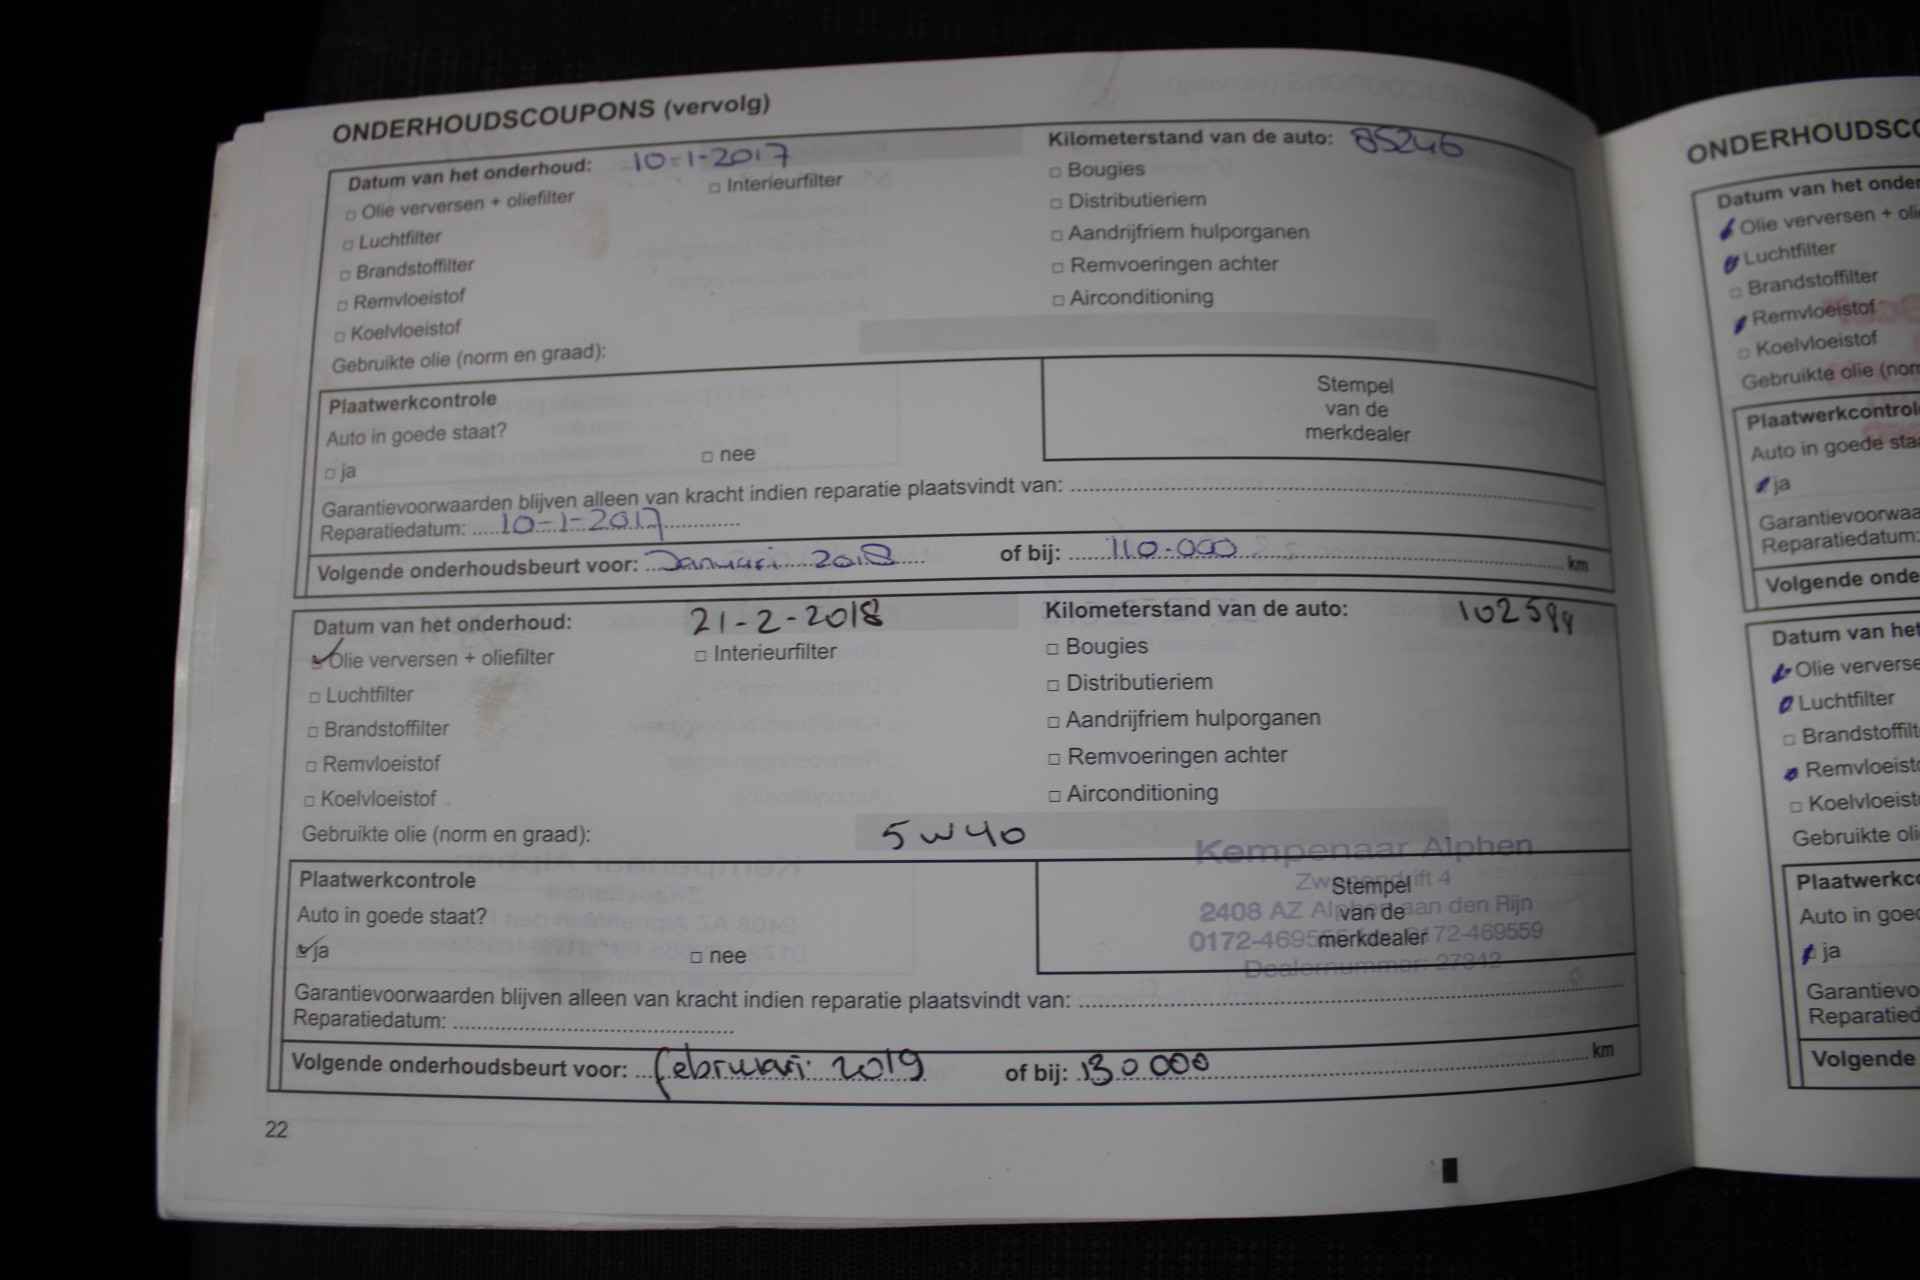 ONDERHOUDSCOUPONS (vervolg)
Datum van het onderhoud: 10-1-2017
Kilometerstand van de auto: 85246
□ Olie verversen + oliefilter
□ Interieurfilter
□ Luchtfilter
□ Brandstoffilter
□ Remvloeistof
□ Koelvloeistof
□ Bougies
□ Distributieriem
□ Aandrijfriem hulporganen
□ Remvoeringen achter
□ Airconditioning
Gebruikte olie (norm en graad):
Plaatwerkcontrole
Auto in goede staat?
□ ja
□ nee
Stempel
van de
merkdealer
Garantievoorwaarden blijven alleen van kracht indien reparatie plaatsvindt van:
Reparatiedatum: 10-1-2017
Volgende onderhoudsbeurt voor: Januari 2018 of bij: 110.000 km
Datum van het onderhoud: 21-2-2018
Kilometerstand van de auto: 102594
Olie verversen + oliefilter
□ Interieurfilter
□ Luchtfilter
□ Brandstoffilter
□ Remvloeistof
□ Koelvloeistof
□ Bougies
□ Distributieriem
□ Aandrijfriem hulporganen
□ Remvoeringen achter
□ Airconditioning
Gebruikte olie (norm en graad): 5W40
Plaatwerkcontrole
Auto in goede staat?
ja
□ nee
Kempenaar Alphen
4
2408 AZ Alphen aan den Rijn
Stempel
van de
merkdealer
Dealernummer: 27312
Garantievoorwaarden blijven alleen van kracht indien reparatie plaatsvindt van:
Reparatiedatum:
Volgende onderhoudsbeurt voor: februari 2019 of bij: 130000 km
22
ONDERHOUDSCO
Datum van het onder
Olie verversen + oli
Luchtfilter
□ Brandstoffilter
Remvloeistof
□ Koelvloeistof
Gebruikte olie (nor
Plaatwerkcontrol
Auto in goede sta
ja
Garantievoorwaa
Reparatiedatum:
Volgende onde
Datum van het
Olie ververse
Luchtfilter
□ Brandstoffilt
Remvloeist
□ Koelvloeist
Gebruikte oli
Plaatwerkc
Auto in goe
ja
Garantievo
Reparatied
Volgende